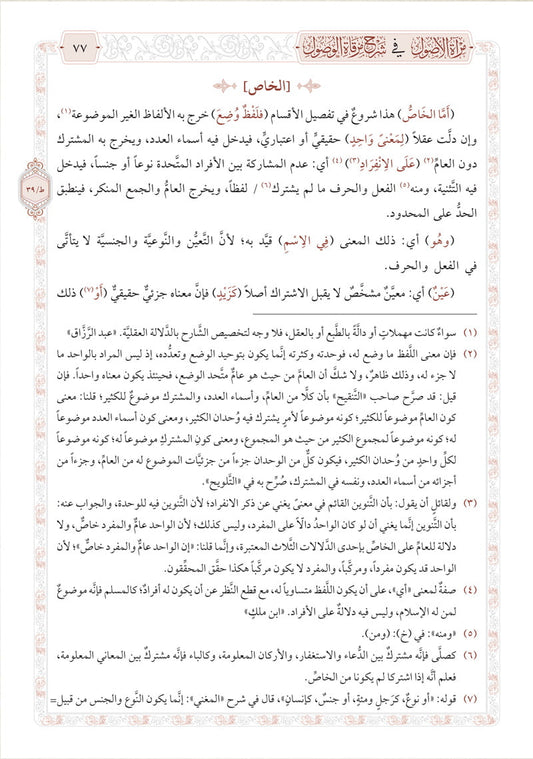 مرآة الأصول في شرح مرقاة الوصول
٧٧
[الخاص]
(أَمَّا الخَاصُّ) هذا شروعٌ في تفصيل الأقسام (فلَفْظٌ وُضِعَ) خرج به الألفاظ الغير الموضوعة(١)،
وإن دلَّت عقلاً (لِمَعْنًى وَاحِدٍ) حقيقيٍّ أو اعتباريٍّ، فيدخل فيه أسماء العدد، ويخرج به المشترك
دون العامِّ(٢) (عَلَى الِانْفِرَادِ(٣))(٤) أي: عدم المشاركة بين الأفراد المتَّحدة نوعاً أو جنساً، فيدخل
فيه التَّثنية، ومنه(٥) الفعل والحرف ما لم يشترك(٦) / لفظاً، ويخرج العامُّ والجمع المنكر، فينطبق
الحدُّ على المحدود.
ظ/٣٩
(وهُو) أي: ذلك المعنى (فِي الِاسْمِ) قيَّد به؛ لأنَّ التَّعيُّن والنَّوعية والجنسية لا يتأتَّى
في الفعل والحرف.
(عَيْنٌ) أي: معيَّنٌ مشخَّصٌ لا يقبل الاشتراك أصلاً (كَزَيْدٍ) فإنَّ معناه جزئيٌّ حقيقيٌّ (أَوْ(٧)) ذلك
(١) سواءٌ كانت مهملاتٍ أو دالَّةً بالطَّبع أو بالعقل، فلا وجه لتخصيص الشَّارح بالدَّلالة العقليَّة. «عبد الرَّزَّاق»
(٢) فإن معنى اللَّفظ ما وضع له، فوحدته وكثرته إنَّما يكون بتوحيد الوضع وتعدُّده، إذ ليس المراد بالواحد ما
لا جزء له، وذلك ظاهرٌ، ولا شكَّ أن العامَّ من حيث هو عامٌّ متَّحد الوضع، فحينئذٍ يكون معناه واحداً. فإن
قيل: قد صرَّح صاحب «التَّنقيح» بأن كلًّا من العامِّ، وأسماء العدد، والمشترك موضوعٌ للكثير؛ قلنا: معنى
كون العامِّ موضوعاً للكثير؛ كونه موضوعاً لأمرٍ يشترك فيه وُحدان الكثير، ومعنى كون أسماء العدد موضوعاً
له؛ كونه موضوعاً لمجموع الكثير من حيث هو المجموع، ومعنى كونِ المشتركِ موضوعاً له؛ كونه موضوعاً
لكلِّ واحدٍ من وُحدان الكثير، فيكون كلٌّ من الوحدان جزءاً من جزئيَّات الموضوع له من العامِّ، وجزءاً من
أجزائه من أسماء العدد، ونفسه في المشترك، صُرِّح به في «التَّلويح».
(٣) ولقائلٍ أن يقول: بأن التَّنوين القائم في معنىً يغني عن ذكر الانفراد؛ لأن التَّنوين فيه للوحدة، والجواب عنه:
بأن التَّنوين إنَّما يغني أن لو كان الواحدُ دالّاً على المفرد، وليس كذلك؛ لأن الواحد عامٌّ والمفرد خاصٌّ، ولا
دلالة للعامِّ على الخاصِّ بإحدى الدَّلالات الثَّلاث المعتبرة، وإنَّما قلنا: «إن الواحد عامٌّ والمفرد خاصٌّ»؛ لأن
الواحد قد يكون مفرداً، ومركَّباً، والمفرد لا يكون مركَّباً هكذا حقَّق المحقِّقون.
(٤) صفةٌ لمعنى «أي»، على أن يكون اللَّفظ متساوياً له، مع قطع النَّظر عن أن يكون له أفرادٌ؛ كالمسلم فإنَّه موضوعٌ
لمن له الإسلام، وليس فيه دلالةٌ على الأفراد. «ابن ملكٍ»
(٥) «ومنه»: في (خ): (ومن).
(٦) كصلَّى فإنَّه مشتركٌ بين الدُّعاء والاستغفار، والأركان المعلومة، وكالباء فإنَّه مشتركٌ بين المعاني المعلومة،
فعلم أنَّه إذا اشتركا لم يكونا من الخاصِّ.
(٧) قوله: «أو نوعٌ، كرَجلٍ ومئةٍ، أو جنسٌ، كإنسانٍ»، قال في شرح «المغني»: إنَّما يكون النَّوع والجنس من قبيل=